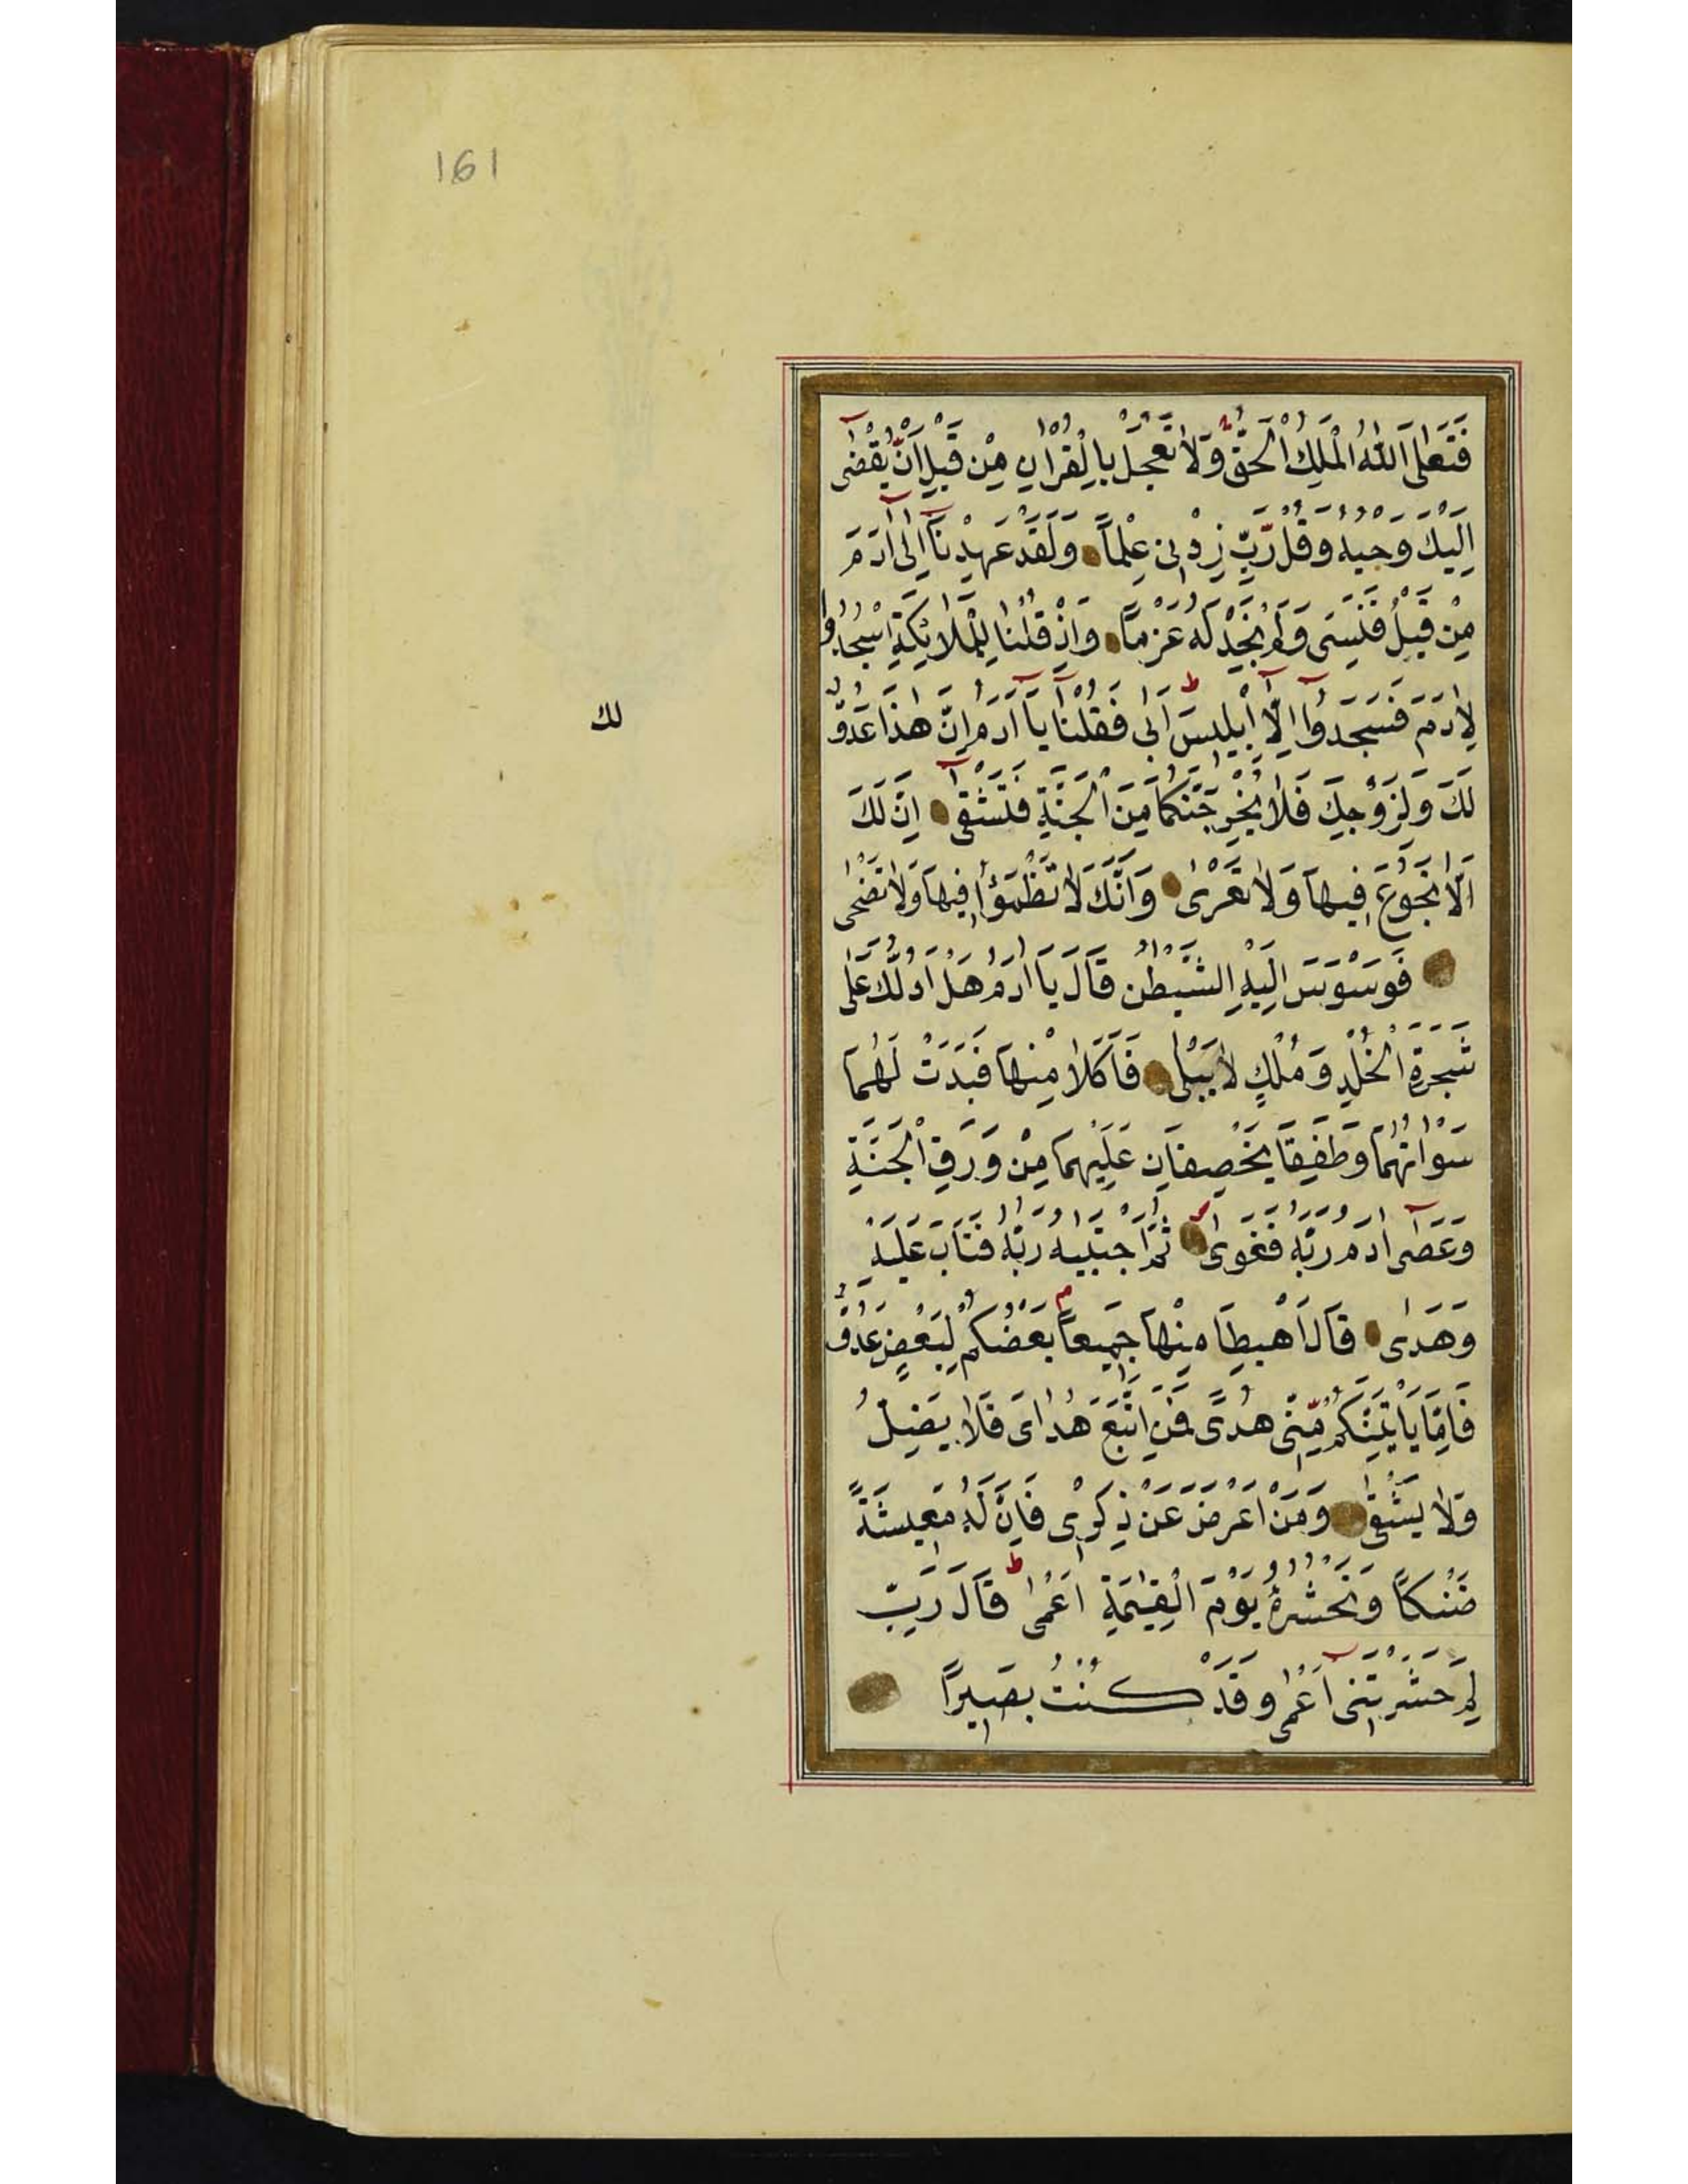 161
فَتَعٰلَى اللّٰهُ الْمَلِكُ الْحَقُّ وَلَا تَعْجَلْ بِالْقُرْاٰنِ مِنْ قَبْلِ اَنْ يُقْضٰى
اِلَيْكَ وَحْيُهُ وَقُلْ رَبِّ زِدْنِى عِلْماً وَلَقَدْ عَهِدْنَا اِلٰى اٰدَمَ
مِنْ قَبْلُ فَنَسِىَ وَلَمْ نَجِدْ لَهُ عَزْماً وَاِذْ قُلْنَا لِلْمَلَائِكَةِ اسْجُدُوا
لِاٰدَمَ فَسَجَدُوا اِلَّا اِبْلِيسَ اَبٰى فَقُلْنَا يَا اٰدَمُ اِنَّ هٰذَا عَدُوٌّ
لك
لَكَ وَلِزَوْجِكَ فَلَا يُخْرِجَنَّكُمَا مِنَ الْجَنَّةِ فَتَشْقٰى اِنَّ لَكَ
اَلَّا تَجُوعَ فِيهَا وَلَا تَعْرٰى وَاَنَّكَ لَا تَظْمَؤُا فِيهَا وَلَا تَضْحٰى
فَوَسْوَسَ اِلَيْهِ الشَّيْطٰنُ قَالَ يَا اٰدَمُ هَلْ اَدُلُّكَ عَلٰى
شَجَرَةِ الْخُلْدِ وَمُلْكٍ لَا يَبْلٰى فَاَكَلَا مِنْهَا فَبَدَتْ لَهُمَا
سَوْاٰتُهُمَا وَطَفِقَا يَخْصِفَانِ عَلَيْهِمَا مِنْ وَرَقِ الْجَنَّةِ
وَعَصٰى اٰدَمُ رَبَّهُ فَغَوٰى ثُمَّ اجْتَبٰيهُ رَبُّهُ فَتَابَ عَلَيْهِ
وَهَدٰى قَالَ اهْبِطَا مِنْهَا جَمِيعاً بَعْضُكُمْ لِبَعْضٍ عَدُوٌّ
فَاِمَّا يَاْتِيَنَّكُمْ مِنِّى هُدًى فَمَنِ اتَّبَعَ هُدَاىَ فَلَا يَضِلُّ
وَلَا يَشْقٰى وَمَنْ اَعْرَضَ عَنْ ذِكْرِى فَاِنَّ لَهُ مَعِيشَةً
ضَنْكاً وَنَحْشُرُهُ يَوْمَ الْقِيٰمَةِ اَعْمٰى قَالَ رَبِّ
لِمَ حَشَرْتَنِى اَعْمٰى وَقَدْ كُنْتُ بَصِيراً